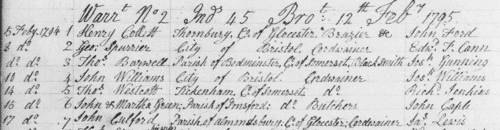 Warrt. No 2 Ind 45 Brot. 12th Feby 1795
5 Feby. 1794 1 Henry Collett Thornbury, C. of Glocester Brazier &c John Ford
8 do 2 Geo: Spurrier City of Bristol Cordwainer Edwd. T. Cann
do do 3 Thos. Barwell Parish of Bedminster, C. of Somerset, Black Smith Jos: Gunning
10 do 4 John Williams City of Bristol Cordwainer Jos: Williams
14 do 5 Thos. Westcott Tickenham, C. of Somerset, do Richd. Jenkins
16 do 6 John & Martha Green, Parish of Pensford: do Butchers John Caple
17 do 7 John Parish of Almondsbury C. of Glocester: Cordwainer Jas: Lewis